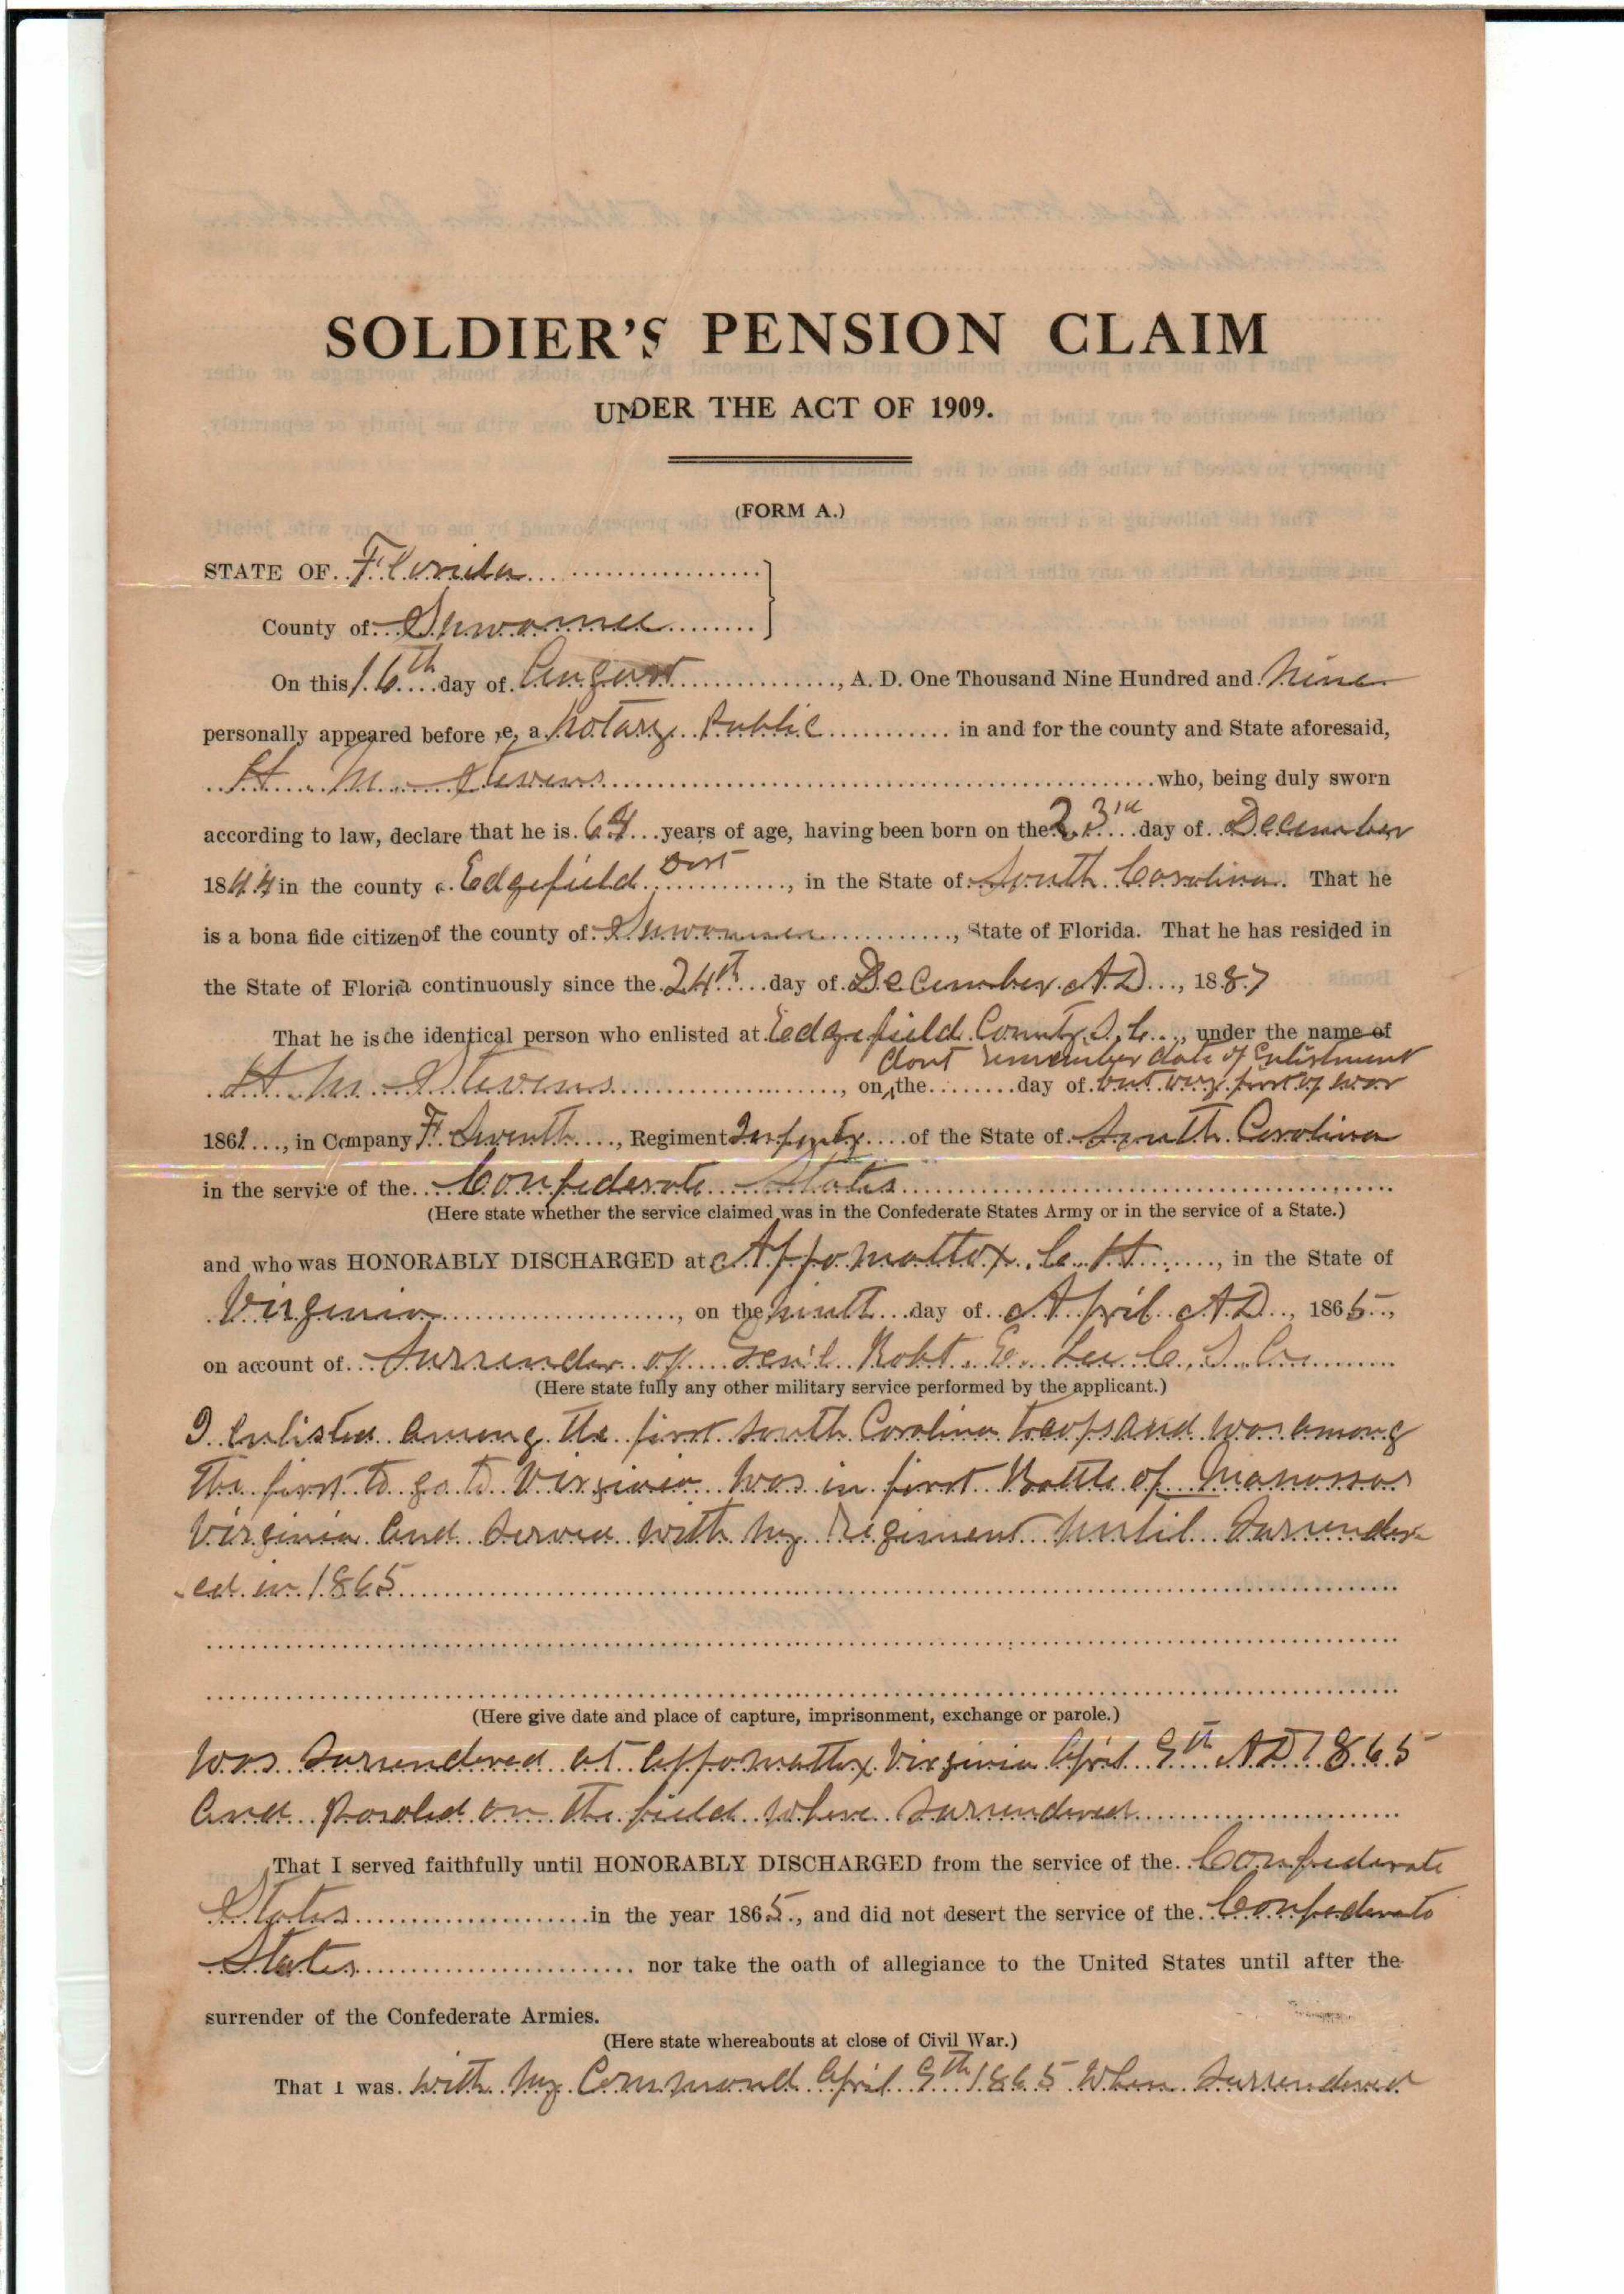 SOLDIER'S PENSION CLAIM
UNDER THE ACT OF 1909.
(FORM A.)
STATE OF Florida
County of Suwannee
On this 16th day of August, A. D. One Thousand Nine Hundred and Nine
personally appeared before e, a Notary Public in and for the county and State aforesaid,
H. M. Stevens who, being duly sworn
according to law, declare that he is 64 years of age, having been born on the 23rd day of December
1844 in the county Edgefield Dist, in the State of South Carolina. That he
is a bona fide citizen of the county of Suwannee, State of Florida. That he has resided in
the State of Florida continuously since the 24th day of December A.D., 1887
That he is the identical person who enlisted at Edgefield County S. C., under the name of
dont remember date of Enlistment
H. M. Stevens, on the day of but very first of war
1861, in Company F. Seventh, Regiment Infantry of the State of South Carolina
in the service of the Confederate States
(Here state whether the service claimed was in the Confederate States Army or in the service of a State.)
and who was HONORABLY DISCHARGED at Appomattox C. H., in the State of
Virginia, on the ninth day of April A.D., 1865,
on account of Surrender of Gen'l Robt. E. Lee C. S.
(Here state fully any other military service performed by the applicant.)
I Enlisted among the first South Carolina troops and was among
the first to go to Virginia was in first Battle of Manassas
Virginia and Served with my Regiment until Surrender-
ed in 1865
(Here give date and place of capture, imprisonment, exchange or parole.)
Was Surrendered at Appomattox Virginia April 9th AD 1865
and Paroled on the field where Surrendered
That I served faithfully until HONORABLY DISCHARGED from the service of the Confederate
States in the year 1865., and did not desert the service of the Confederate
States nor take the oath of allegiance to the United States until after the
surrender of the Confederate Armies.
(Here state whereabouts at close of Civil War.)
That I was with my Command April 9th 1865 When Surrendered